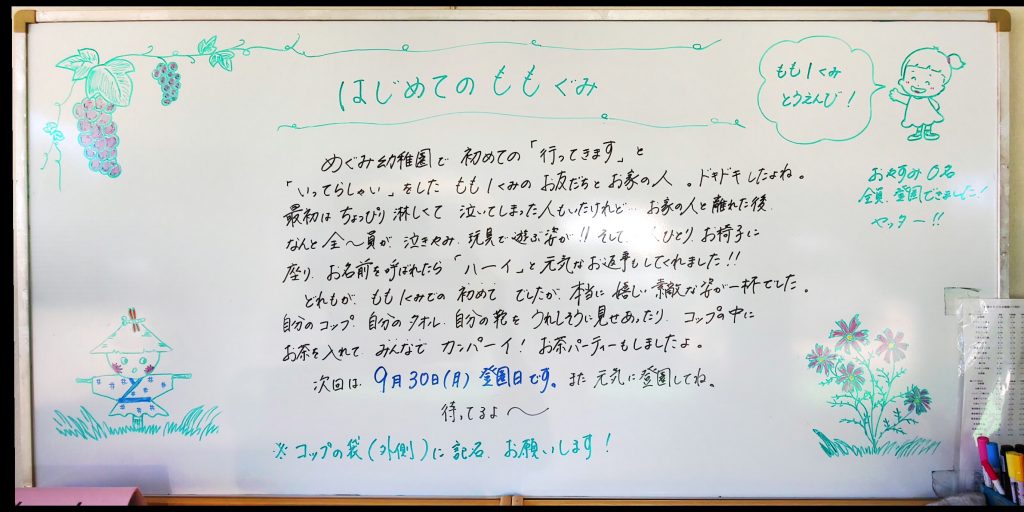 はじめてのももぐみ
もも1くみ
とうえんび!
おやすみ0名
全員、登園できました!
ヤッター!!
めぐみ幼稚園で 初めての「行ってきます」と
「いってらしゃい」をした もも1くみの お友だちと お家の人 。ドキドキしたよね。
最初は ちょっぴり 淋しくて 泣いてしまった人もいたけれど… お家の人と離れた後、
なんと 全〜員が 泣きやみ、玩具で遊ぶ姿が!! そして、 ひとり、お椅子に
座り、お名前を呼ばれたら「ハーイ」と元気なお返事もしてくれました!!
どれもが、もも1くみでの 初めて でしたが、本当に 嬉しい 素敵な姿が一杯でした。
自分のコップ、自分のタオル、自分の靴を うれしそうに見せあったり、コップの中に
お茶を入れて みんなで カンパーイ! お茶パーティーもしましたよ。
次回は 9月30日(月) 登園日です。また 元気に登園してね。
待ってるよ〜
※ コップの袋(外側)に記名、お願いします!